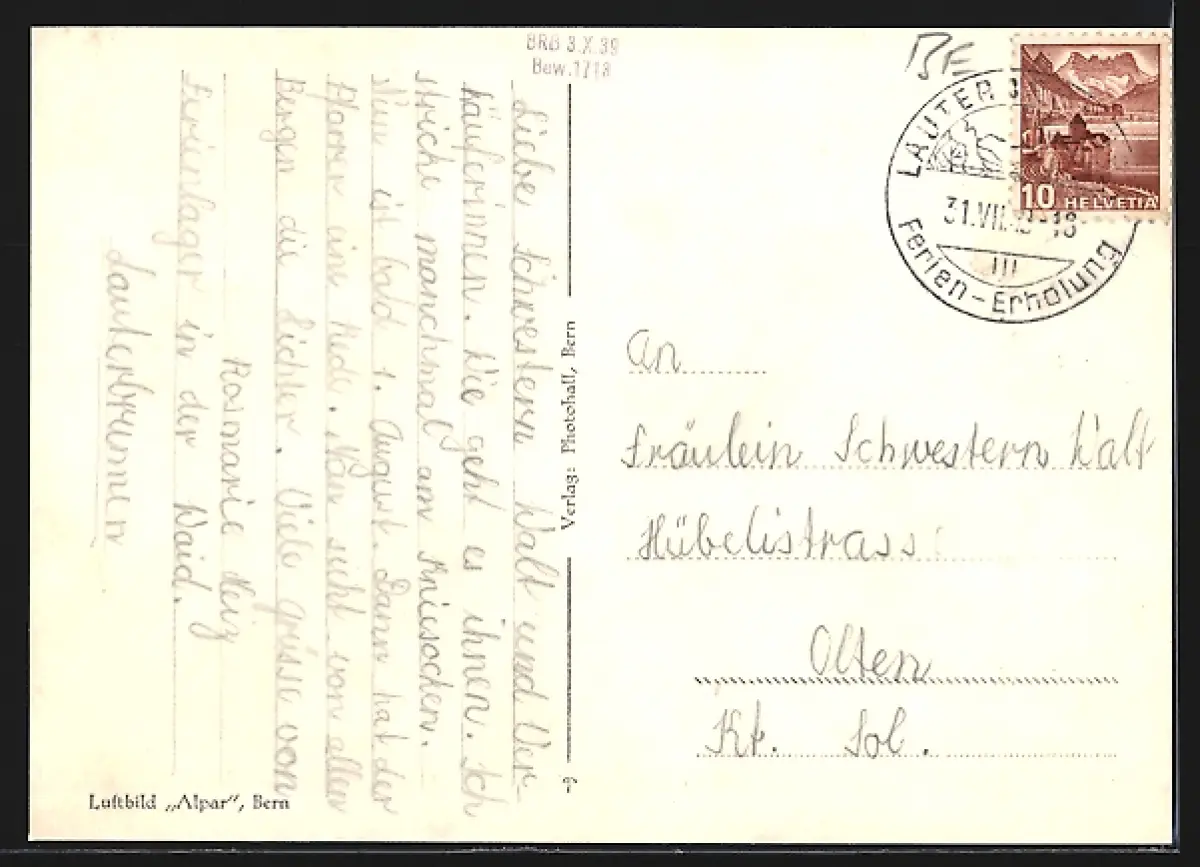 BRB 3.X.39
Bew. 1713
Liebe Schwestern Walt und Ver-
käuferinnen. Wie geht es ihnen. Ich
stricke manchmal am Kniesocken.
Nun ist bald 1. August. Dann hat der
Pfarrer eine Rede. Man sieht von allen
Bergen die Lichter. Viele grüsse von
Rosmarie
Ferienlager in der Waid.
Lauterbrunnen
Luftbild „Alpar", Bern
Verlag: Photohall, Bern
BE
LAUTER
31.VII. -18
III
Ferien-Erholung
10 HELVETIA
An
Fräulein Schwestern Walt
Hübelistrass
Olten
Kt. Sol.